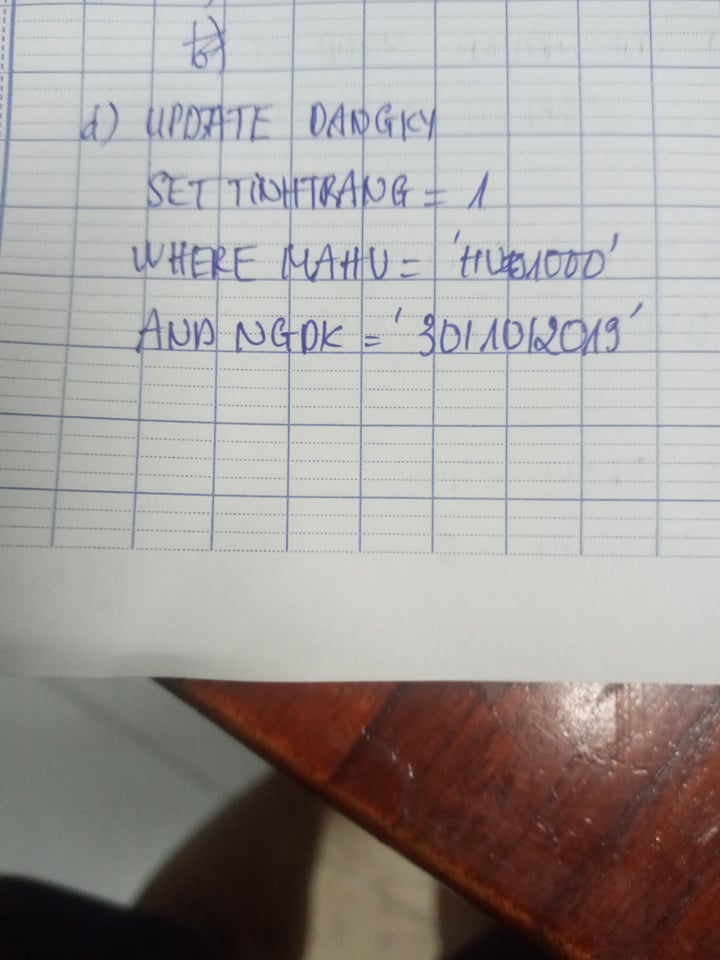 d) UPDATE DANGKY
SET TINHTRANG = 1
WHERE MAHU = 'HU01000'
AND NGDK = '30/10/2019'